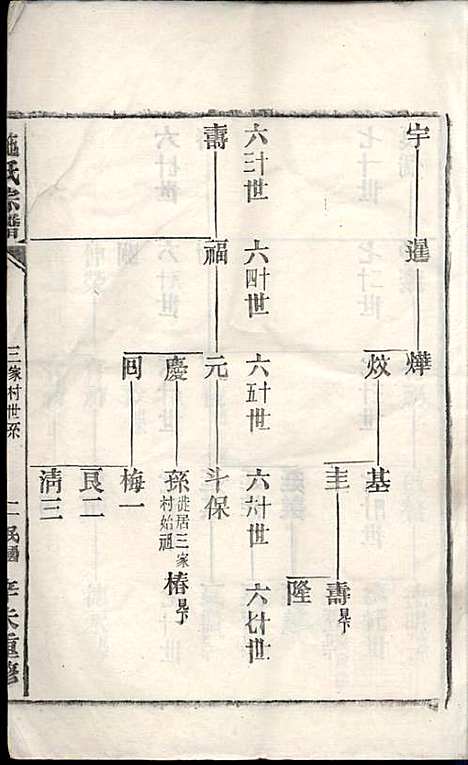 宇
暹
燁
炆
基
圭
壽 見下
隆
六十三世
六十四世
六十五世
六十六世
六十七世
壽
福
元
斗保
慶
孫 徙居三家村始祖
椿 見下
同
梅一
艮二
清三
施氏宗譜
三家村世系
二
民國
壬天重修